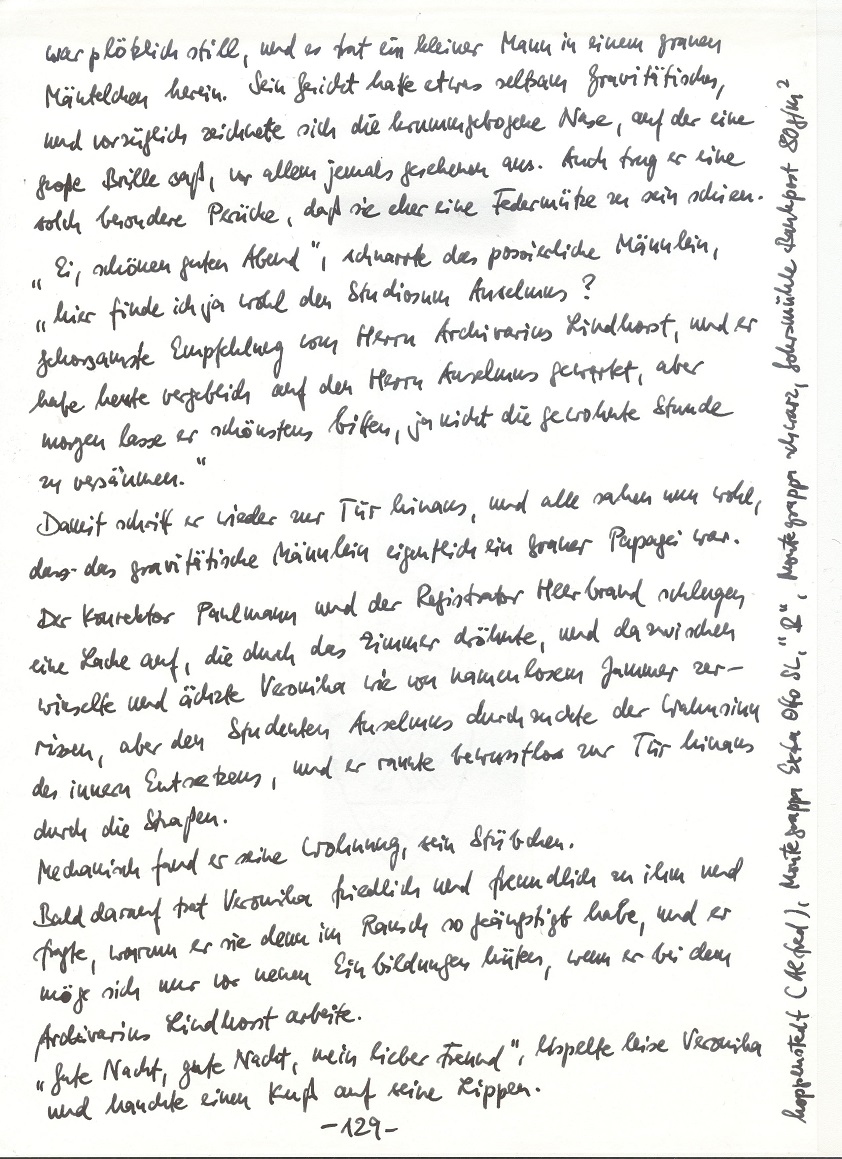 war plötzlich still, und es trat ein kleiner Mann in einem grauen
Mäntelchen herein. Sein Gesicht hatte etwas seltsam Gravitätisches,
und vorzüglich zeichnete sich die krummgebogene Nase, auf der eine
große Brille saß, vor allem jemals gesehenen aus. Auch trug er eine
solch besondere Perücke, daß sie eher eine Federmütze zu sein schien.
„Ei, schönen guten Abend“, schnarrte das possierliche Männlein,
„hier finde ich ja wohl den Studiosum Anselmus?
gehorsamste Empfehlung vom Herrn Archivarius Lindhorst, und er
habe heute vergeblich auf den Herrn Anselmus gewartet, aber
morgen lasse er schönstens bitten, ja nicht die gewohnte Stunde
zu versäumen.“
Damit schritt er wieder zur Tür hinaus, und alle sahen nun wohl,
dass das gravitätische Männlein eigentlich ein grauer Papagei war.
Der Konrektor Paulmann und der Registrator Heerbrand schlugen
eine Lache auf, die durch das Zimmer dröhnte, und dazwischen
winselte und ächzte Veronika wie von namenlosem Jammer zer-
rissen, aber den Studenten Anselmus durchzuckte der Wahnsinn
des innern Entsetzens, und er rannte bewusstlos zur Tür hinaus
durch die Straßen.
Mechanisch fand er seine Wohnung, sein Stübchen.
Bald darauf trat Veronika friedlich und freundlich zu ihm und
fragte, warum er sie denn im Rausch so geängstigt habe, und er
möge sich nur vor neuen Einbildungen hüten, wenn er bei dem
Archivarius Lindhorst arbeite.
„Gute Nacht, gute Nacht, mein lieber Freund“, lispelte leise Veronika
und hauchte einen Kuß auf seine Lippen.
-129-
hoppenstedt (Alfred), Montegrappa Extra Otto SL, "B", Montegrappa schwarz, Gohrsmühle Bankpost 80g/m²